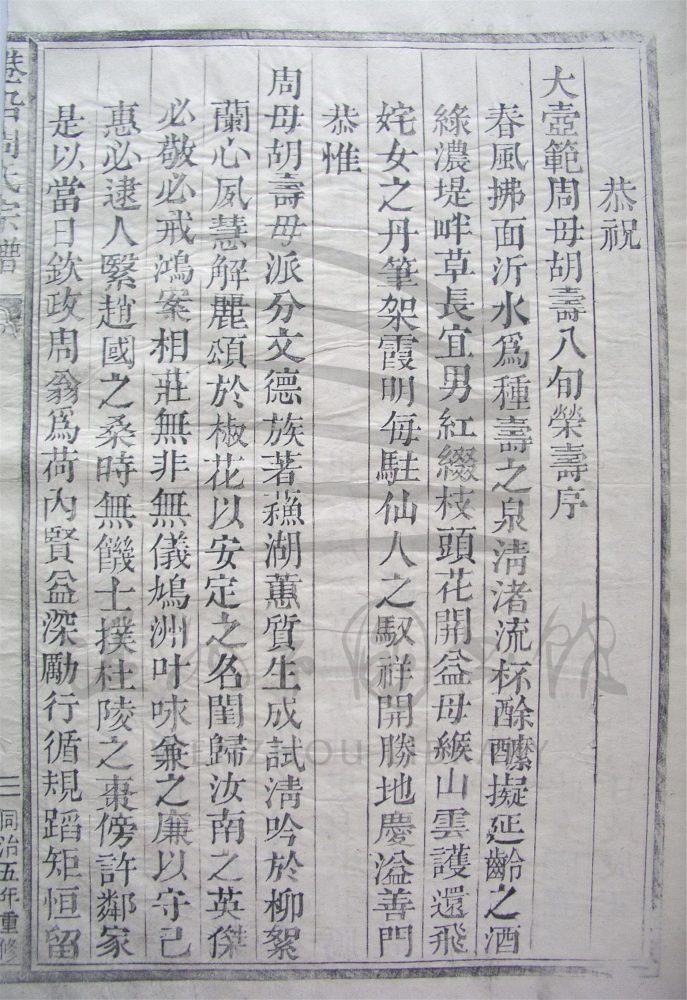 恭祝
大壺範周母胡壽八旬榮壽序
春風拂面沂水爲種壽之泉淸渚流杯酴醾擬延齡之酒
綠濃堤畔草長宜男紅綴枝頭花開益母緱山雲護還飛
姹女之丹筆架霞明每駐仙人之馭祥開勝地慶溢善門
恭惟
周母胡壽母派分文德族著蘓湖蕙質生成試淸吟於柳絮
蘭心夙慧解麗頌於椒花以安定之名閨歸汝南之英傑
必敬必戒鴻案相莊無非無儀鳩洲叶咏兼之廉以守己
惠必逮人緊趙國之桑時無饑士撲杜陵之棗傍許鄰家
是以當日欽政周翁爲荷內賢益深勵行循規蹈矩恒留
周氏宗譜
二 同治五年重修